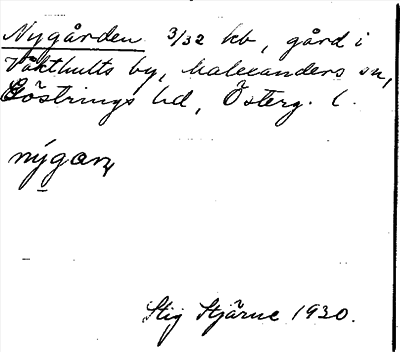 Nygården 3/32 kb, gård i
Våkthults by, Malexanders sn,
Göstrings hd, Österg. l.
nýgaɳ
Stig Stjärne 1930.